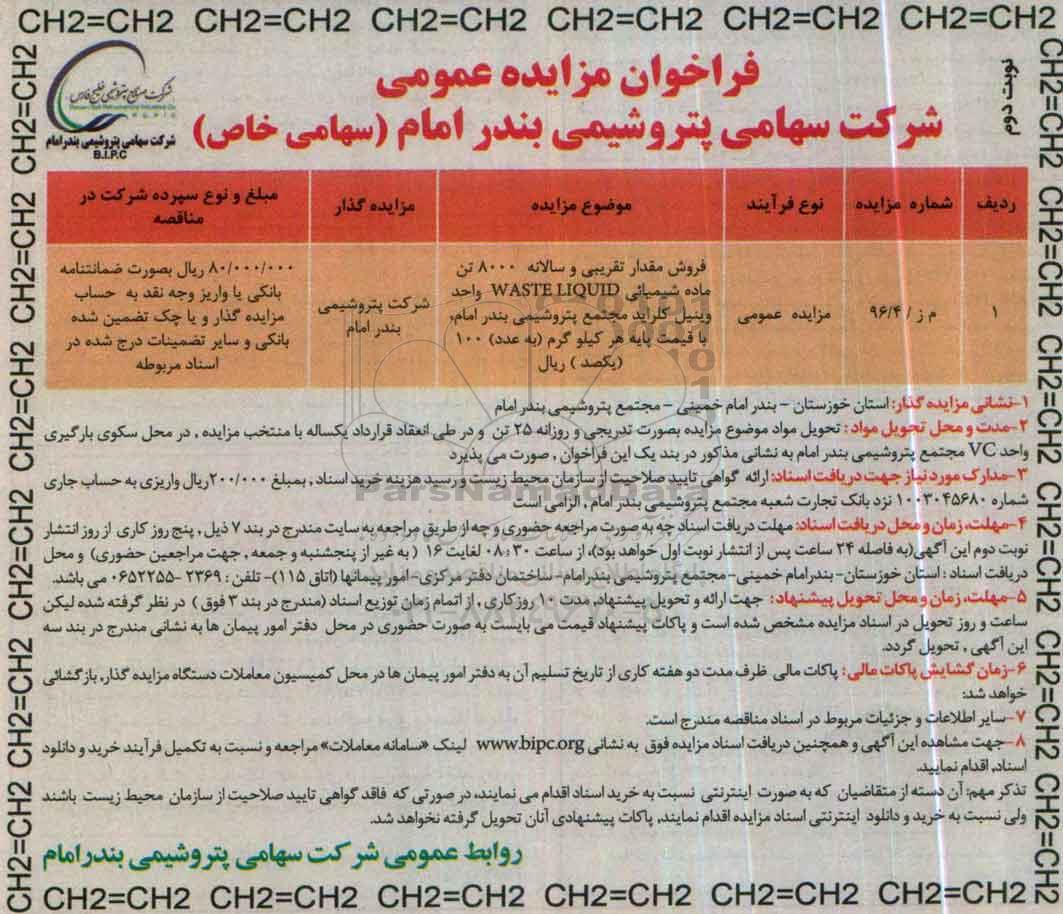 CH2=CH2 CH2=CH2 CH2=CH2 CH2=CH2 CH2=CH2 CH2=CH2
نوبت دوم
فراخوان مزایده عمومی
شرکت سهامی پتروشیمی بندر امام (سهامی خاص)
شرکت صنایع پتروشیمی خلیج فارس
شرکت سهامی پتروشیمی بندرامام
B.I.P.C
ردیف | شماره مزایده | نوع فرآیند | موضوع مزایده | مزایده گذار | مبلغ و نوع سپرده شرکت در مناقصه
۱ | م ز / ۹۶/۴ | مزایده عمومی | فروش مقدار تقریبی و سالانه ۸۰۰۰ تن ماده شیمیائی WASTE LIQUID واحد وینیل کلراید مجتمع پتروشیمی بندر امام، با قیمت پایه هر کیلو گرم (به عدد) ۱۰۰ (یکصد ) ریال | شرکت پتروشیمی بندر امام | ۸۰/۰۰۰/۰۰۰ ریال بصورت ضمانتنامه بانکی یا واریز وجه نقد به حساب مزایده گذار و یا چک تضمین شده بانکی و سایر تضمینات درج شده در اسناد مربوطه
۱-نشانی مزایده گذار: استان خوزستان – بندر امام خمینی – مجتمع پتروشیمی بندر امام
۲-مدت و محل تحویل مواد : تحویل مواد موضوع مزایده بصورت تدریجی و روزانه ۲۵ تن و در طی انعقاد قرارداد یکساله با منتخب مزایده , در محل سکوی بارگیری
واحد VC مجتمع پتروشیمی بندر امام به نشانی مذکور در بند یک این فراخوان , صورت می پذیرد
۳-مدارک مورد نیاز جهت دریافت اسناد: ارائه گواهی تایید صلاحیت از سازمان محیط زیست و رسید هزینه خرید اسناد , بمبلغ ۲۰۰/۰۰۰ریال واریزی به حساب جاری
شماره ۱۰۰۳۰۴۵۶۸۰ نزد بانک تجارت شعبه مجتمع پتروشیمی بندر امام , الزامی است
۴-مهلت، زمان و محل دریافت اسناد: مهلت دریافت اسناد چه به صورت مراجعه حضوری و چه از طریق مراجعه به سایت مندرج در بند ۷ ذیل , پنج روز کاری از روز انتشار
نوبت دوم این آگهی(به فاصله ۲۴ ساعت پس از انتشار نوبت اول خواهد بود)، از ساعت ۰۸:۳۰ لغایت ۱۶ ( به غیر از پنجشنبه و جمعه , جهت مراجعین حضوری) و محل
دریافت اسناد : استان خوزستان- بندرامام خمینی- مجتمع پتروشیمی بندرامام- ساختمان دفتر مرکزی- امور پیمانها (اتاق ۱۱۵)- تلفن : ۲۳۶۹ -۰۶۵۲۲۵۵ می باشد.
۵-مهلت، زمان و محل تحویل پیشنهاد: جهت ارائه و تحویل پیشنهاد, مدت ۱۰ روز کاری , از اتمام زمان توزیع اسناد (مندرج در بند ۳ فوق ) در نظر گرفته شده لیکن
ساعت و روز تحویل در اسناد مزایده مشخص شده است و پاکات پیشنهاد قیمت می بایست به صورت حضوری در محل دفتر امور پیمان ها به نشانی مندرج در بند سه
این آگهی , تحویل گردد.
۶-زمان گشایش پاکات مالی : پاکات مالی ظرف مدت دو هفته کاری از تاریخ تسلیم آن به دفتر امور پیمان ها در محل کمیسیون معاملات دستگاه مزایده گذار, بازگشائی
خواهد شد:
۷-سایر اطلاعات و جزئیات مربوط در اسناد مناقصه مندرج است.
۸-جهت مشاهده این آگهی و همچنین دریافت اسناد مزایده فوق به نشانی www.bipc.org لینک «سامانه معاملات» مراجعه و نسبت به تکمیل فرآیند خرید و دانلود
اسناد, اقدام نمایید.
تذکر مهم: آن دسته از متقاضیان که به صورت اینترنتی نسبت به خرید اسناد اقدام می نمایند، در صورتی که فاقد گواهی تایید صلاحیت از سازمان محیط زیست باشند
ولی نسبت به خرید و دانلود اینترنتی اسناد مزایده اقدام نمایند, پاکات پیشنهادی آنان تحویل گرفته نخواهد شد.
روابط عمومی شرکت سهامی پتروشیمی بندرامام
CH2=CH2 CH2=CH2 CH2=CH2 CH2=CH2 CH2=CH2 CH2=CH2
CH2=CH2 CH2=CH2 CH2=CH2 CH2=CH2 CH2=CH2
CH2=CH2 CH2=CH2 CH2=CH2 CH2=CH2 CH2=CH2
ParsNamadData